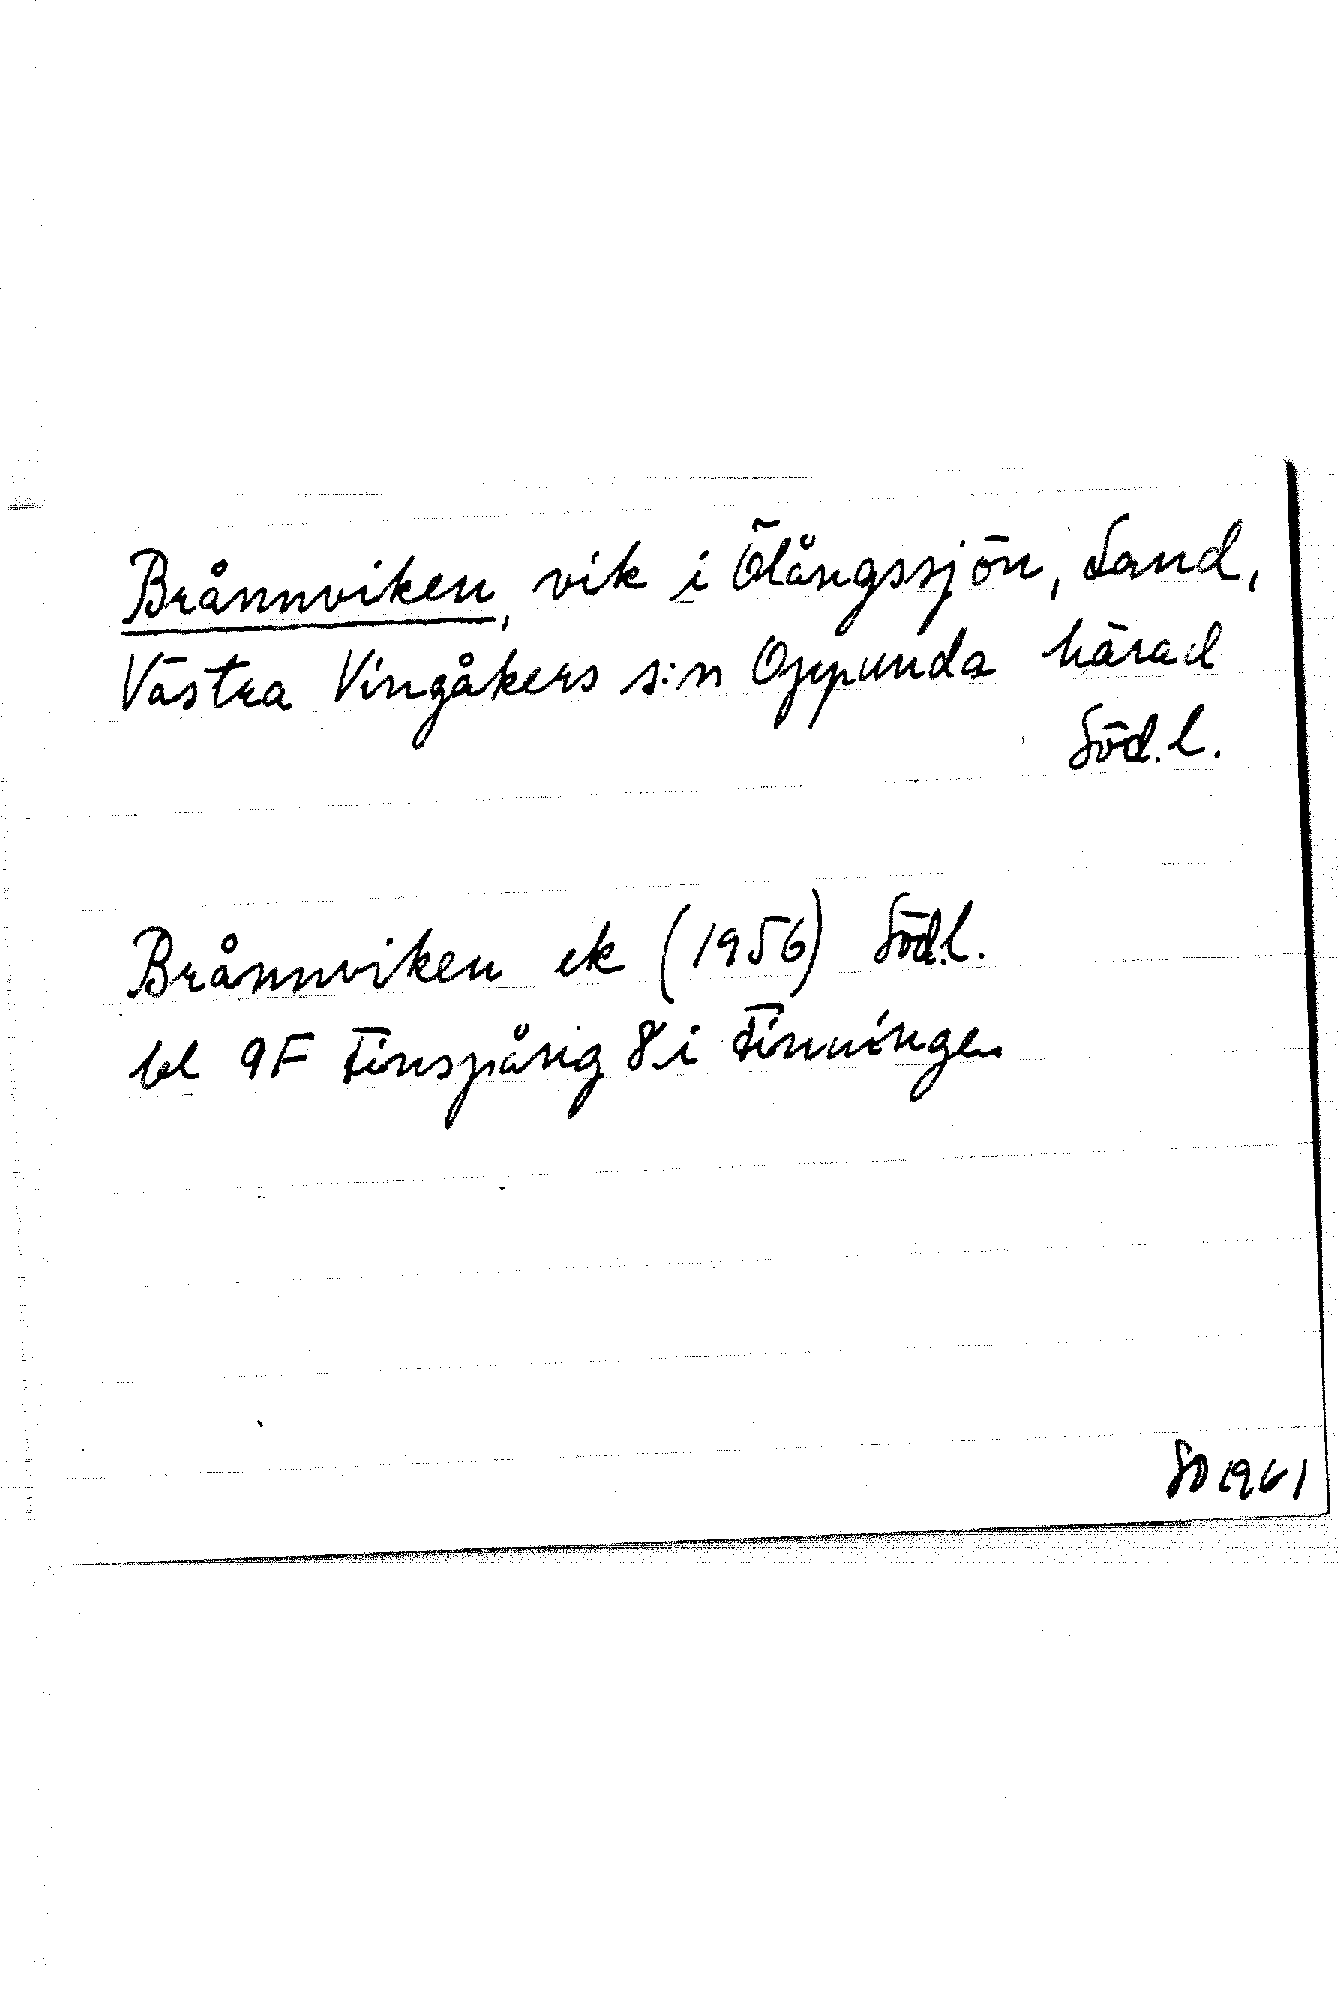 Brånnviken, vik i Ölångssjön, Sand,
Västra Vingåkers s:n Oppunda härad
Söd.l.
Brånnviken ek (1956) Söd.l.
bl 9F Finspång 8i Finninge.
SO 1961